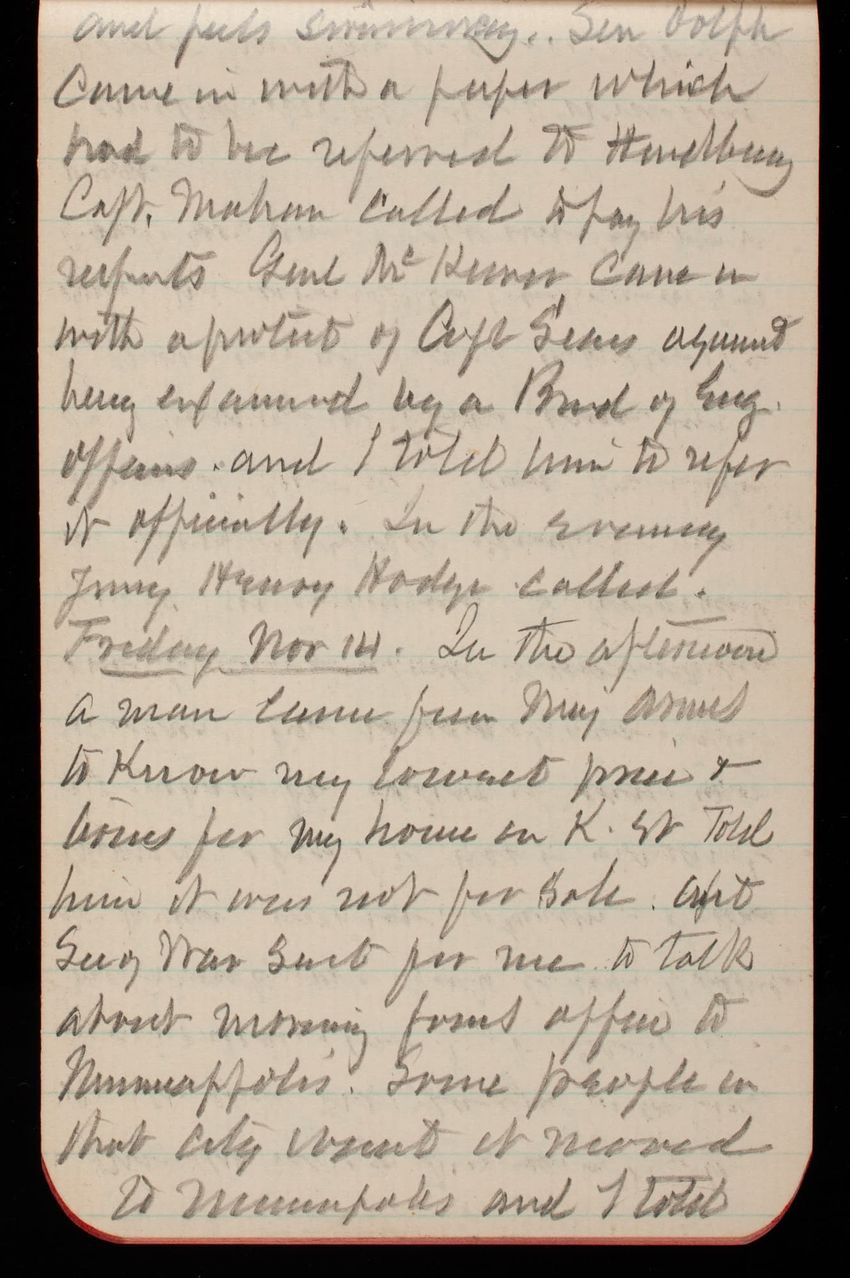 and feels swimming. Sen Dolph
Came in with a paper which
had to be referred to Hendbury
Capt. Mahan called to pay his
respects Genl McKeever came in
with a protest of Capt Sears against
being examined by a Board of Eng.
officers. and I told him to refer
it officially. In the evening
Henry Hodge called.
Friday Nov 14. In the afternoon
a man came from Maj
to Know my lowest price &
terms for my house on K. St Told
him it was not for Sale.
Secy War sent for me to talk
about moving office to
Minneapolis. Some people in
that city want it moved
to Minneapolis and I told